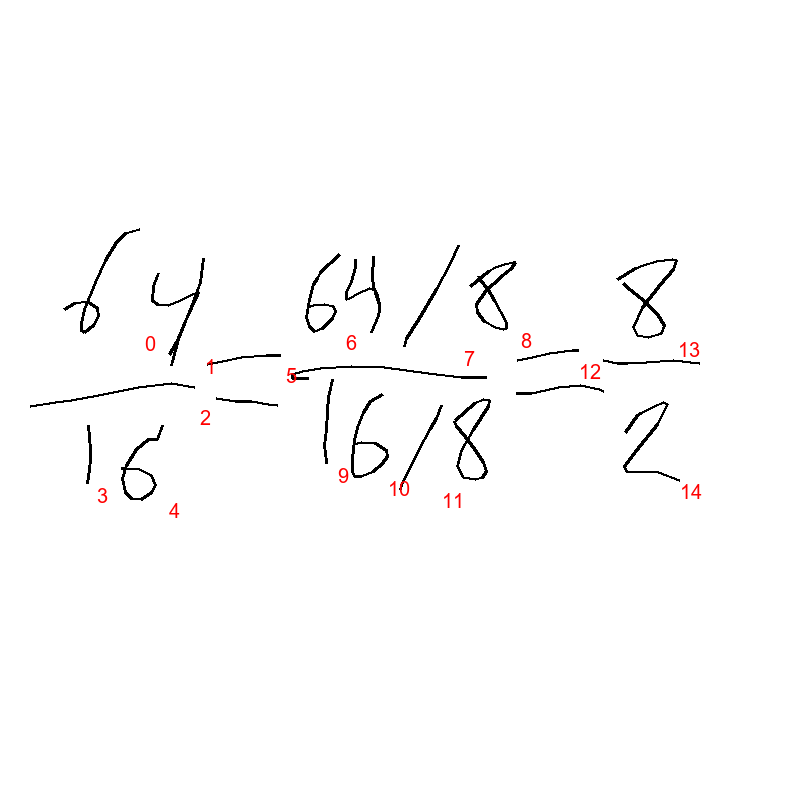 64/16 = (64/8)/(16/8) = 8/2
0 1 2 3 4 5 6 7 8 9 10 11 12 13 14